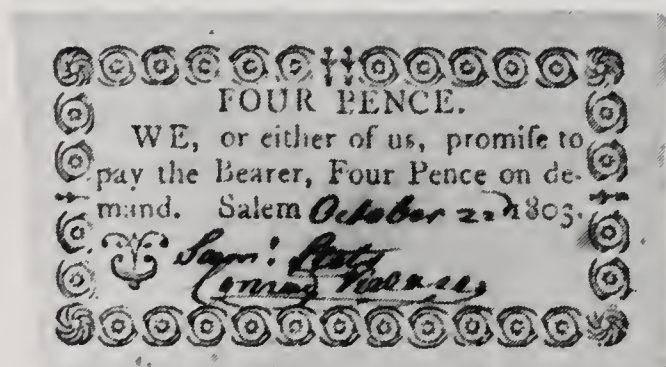 FOUR PENCE.
WE, or either of us, promiſe to
pay the Bearer, Four Pence on de-
mand. Salem October 22d 1803.
Sam!